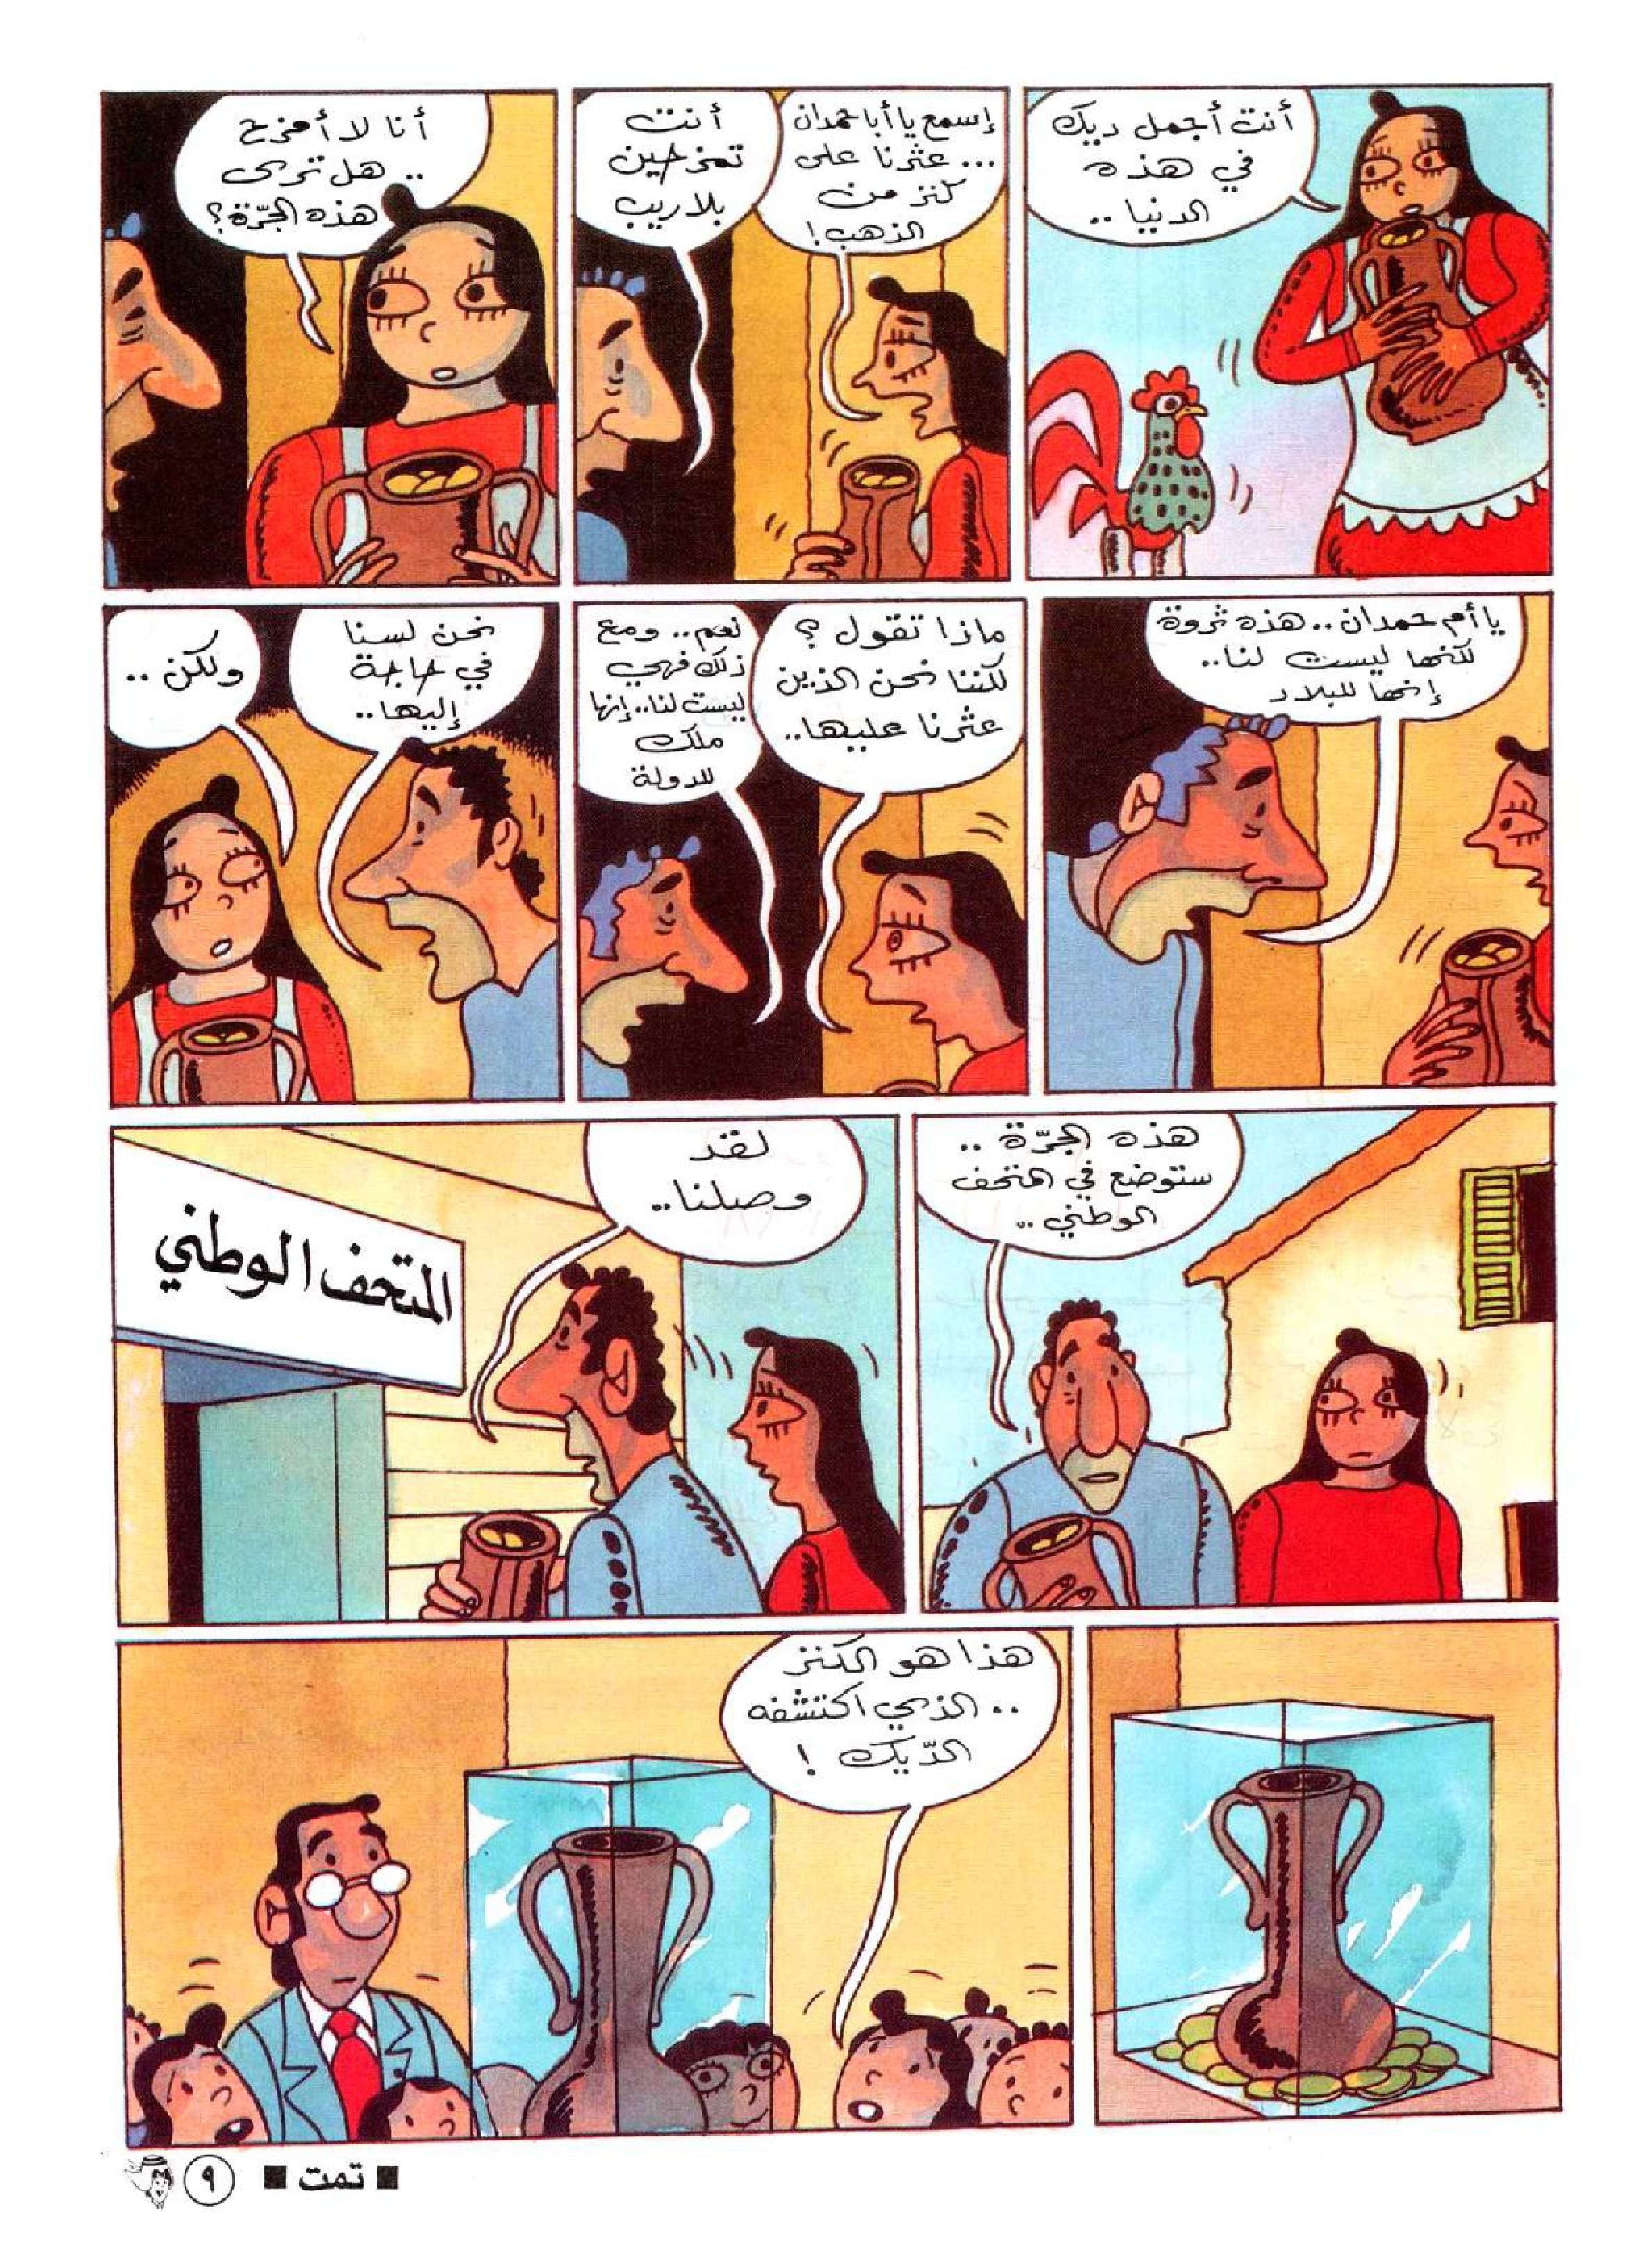 أنت أجمل ديك
في هذه
الدنيا ..
إسمع يا أبا حمدان
... عثرنا على
كنز من
الذهب!
أنت
تمزحين
بلا ريب
أنا لا أمزح
.. هل ترى
هذه الجرّة؟
يا أم حمدان .. هذه ثروة
لكنها ليست لنا..
إنها للبلاد
ماذا تقول ؟
لكننا نحن الذين
عثرنا عليها..
نعم.. ومع
ذلك فهي
ليست لنا.. إنها
ملك
للدولة
نحن لسنا
في حاجة
إليها..
ولكن ..
هذه الجرّة ..
ستوضع في المتحف
الوطني ..
لقد
وصلنا..
المتحف الوطني
هذا هو الكنز
.. الذي اكتشفه
الدّيك !
■ تمت ■
٩